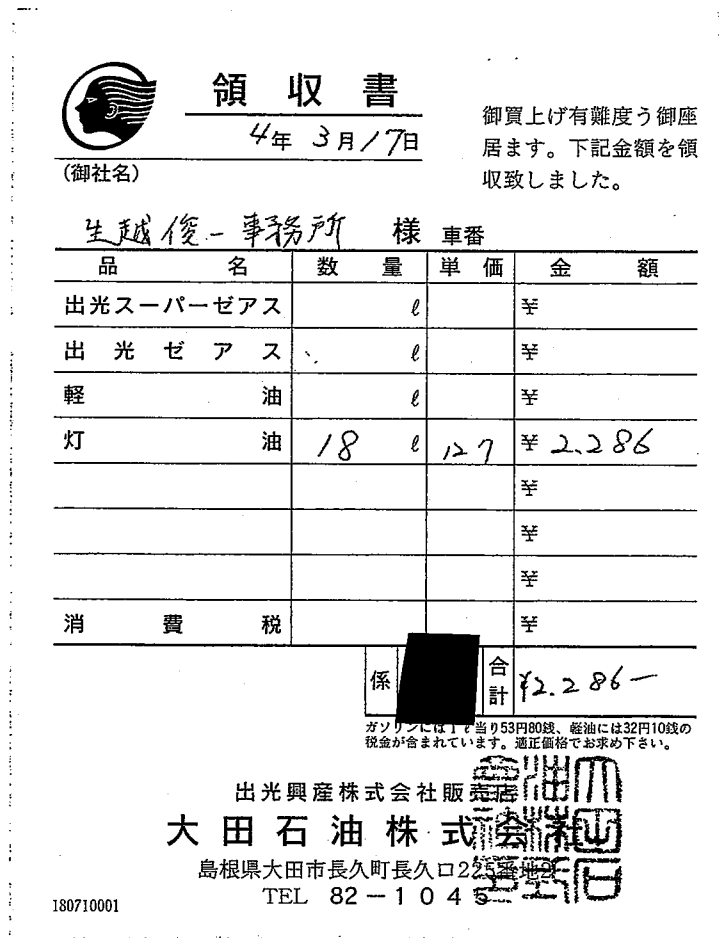 領収書
4年 3月17日
御買上げ有難度う御座
居ます。下記金額を領
収致しました。
(御社名)
生越俊一事務所 様 車番
品名 数量 単価 金額
出光スーパーゼアス ℓ ¥
出光ゼアス ℓ ¥
軽油 ℓ ¥
灯油 18 ℓ 127 ¥2.286
¥
¥
¥
消費税 ¥
係 合計 ¥2.286-
ガソリンには1ℓ当り53円80銭、軽油には32円10銭の
税金が含まれています。適正価格でお求め下さい。
出光興産株式会社販売店
大田石油株式会社
島根県大田市長久町長久口225番地2
TEL 82-1045
180710001